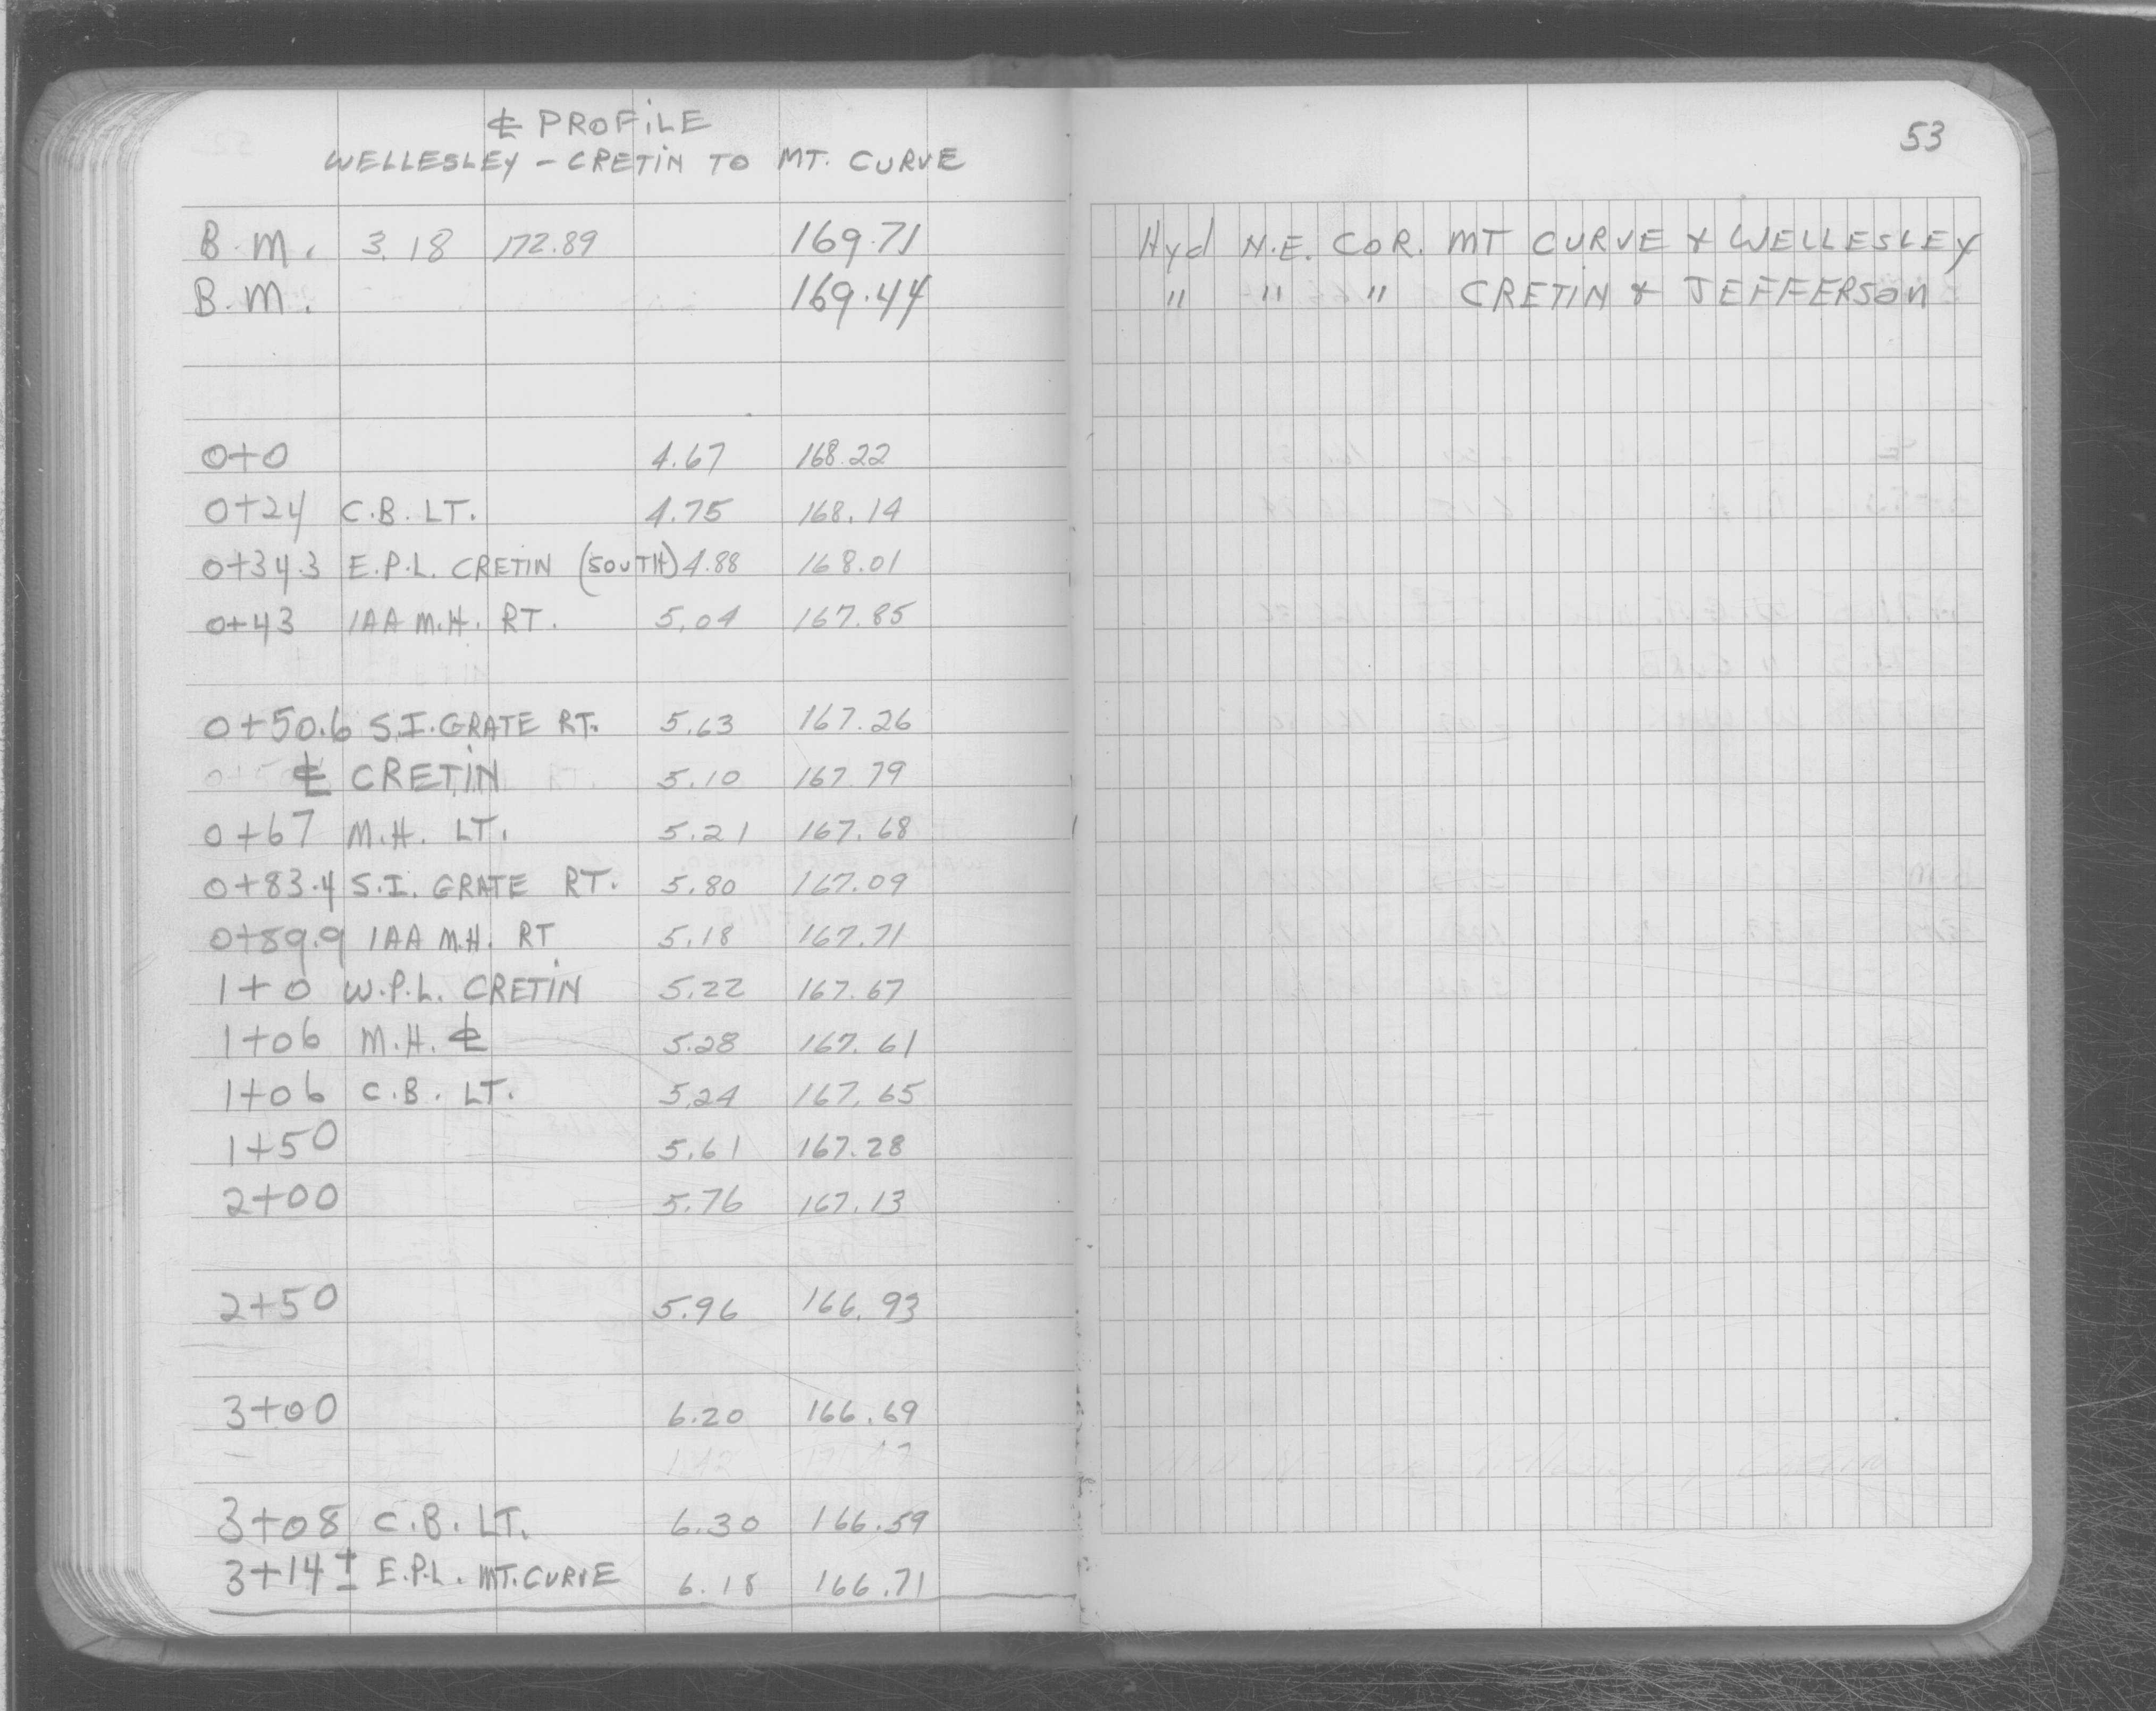 ℄ PROFILE
WELLESLEY - CRETIN TO MT. CURVE
B.M. 3.18 172.89 169.71
B.M. 169.44
0+0 4.67 168.22
0+24 C.B. LT. 4.75 168.14
0+34.3 E.P.L. CRETIN (SOUTH) 4.88 168.01
0+43 1AA M.H. RT. 5.04 167.85
0+50.6 S.I. GRATE RT. 5.63 167.26
℄ CRETIN 5.10 167.79
0+67 M.H. LT. 5.21 167.68
0+83.4 S.I. GRATE RT. 5.80 167.09
0+89.9 1AA M.H. RT 5.18 167.71
1+0 W.P.L. CRETIN 5.22 167.67
1+06 M.H. ℄ 5.28 167.61
1+06 C.B. LT. 5.24 167.65
1+50 5.61 167.28
2+00 5.76 167.13
2+50 5.96 166.93
3+00 6.20 166.69
3+08 C.B. LT. 6.30 166.59
3+14± E.P.L. MT. CURVE 6.18 166.71
53
Hyd N.E. COR. MT CURVE & WELLESLEY
" " " CRETIN & JEFFERSON